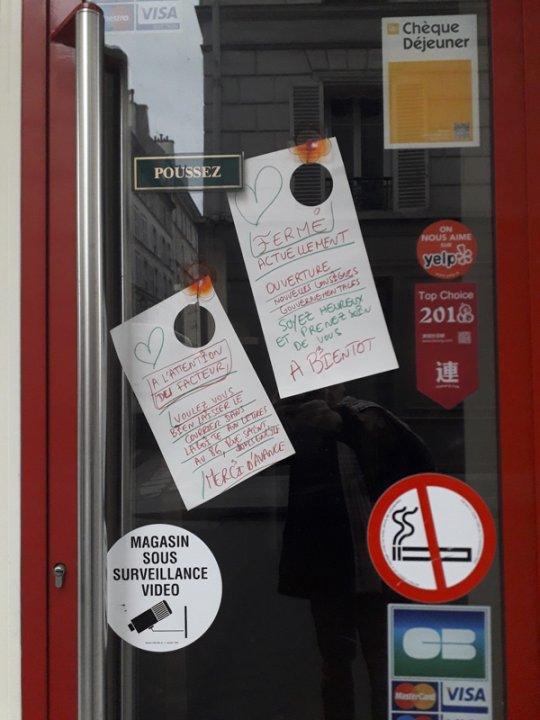 VISA
Chèque
Déjeuner
POUSSEZ
FERMÉ
ACTUELLEMENT
OUVERTURE
NOUVELLES CONSIGNES
GOUVERNEMENTALES
SOYEZ HEUREUX
ET PRENEZ SOIN
DE VOUS
A BIENTOT
A L'ATTENTION
DU FACTEUR
VOULEZ VOUS
BIEN LAISSER LE
COURRIER DANS
LA BOITE AUX LETTRES
AU 86, RUE SAINT
MERCI D'AVANCE
ON NOUS AIME
SUR
yelp
Top Choice
2018
連
MAGASIN
SOUS
SURVEILLANCE
VIDEO
CB
MasterCard
VISA